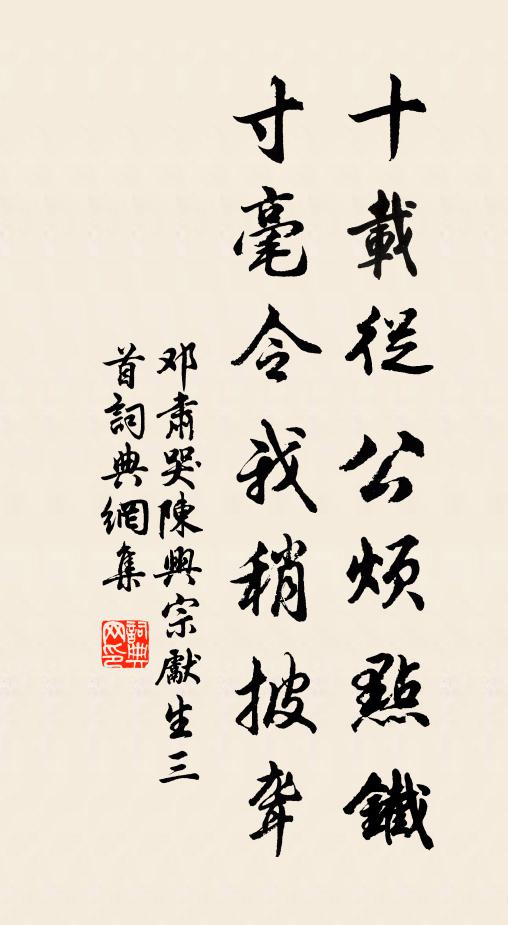 十載從公煩點鐵
寸毫令我稍披聾
邓肅哭陳興宗獻生三
首詞典網集
詞典网印